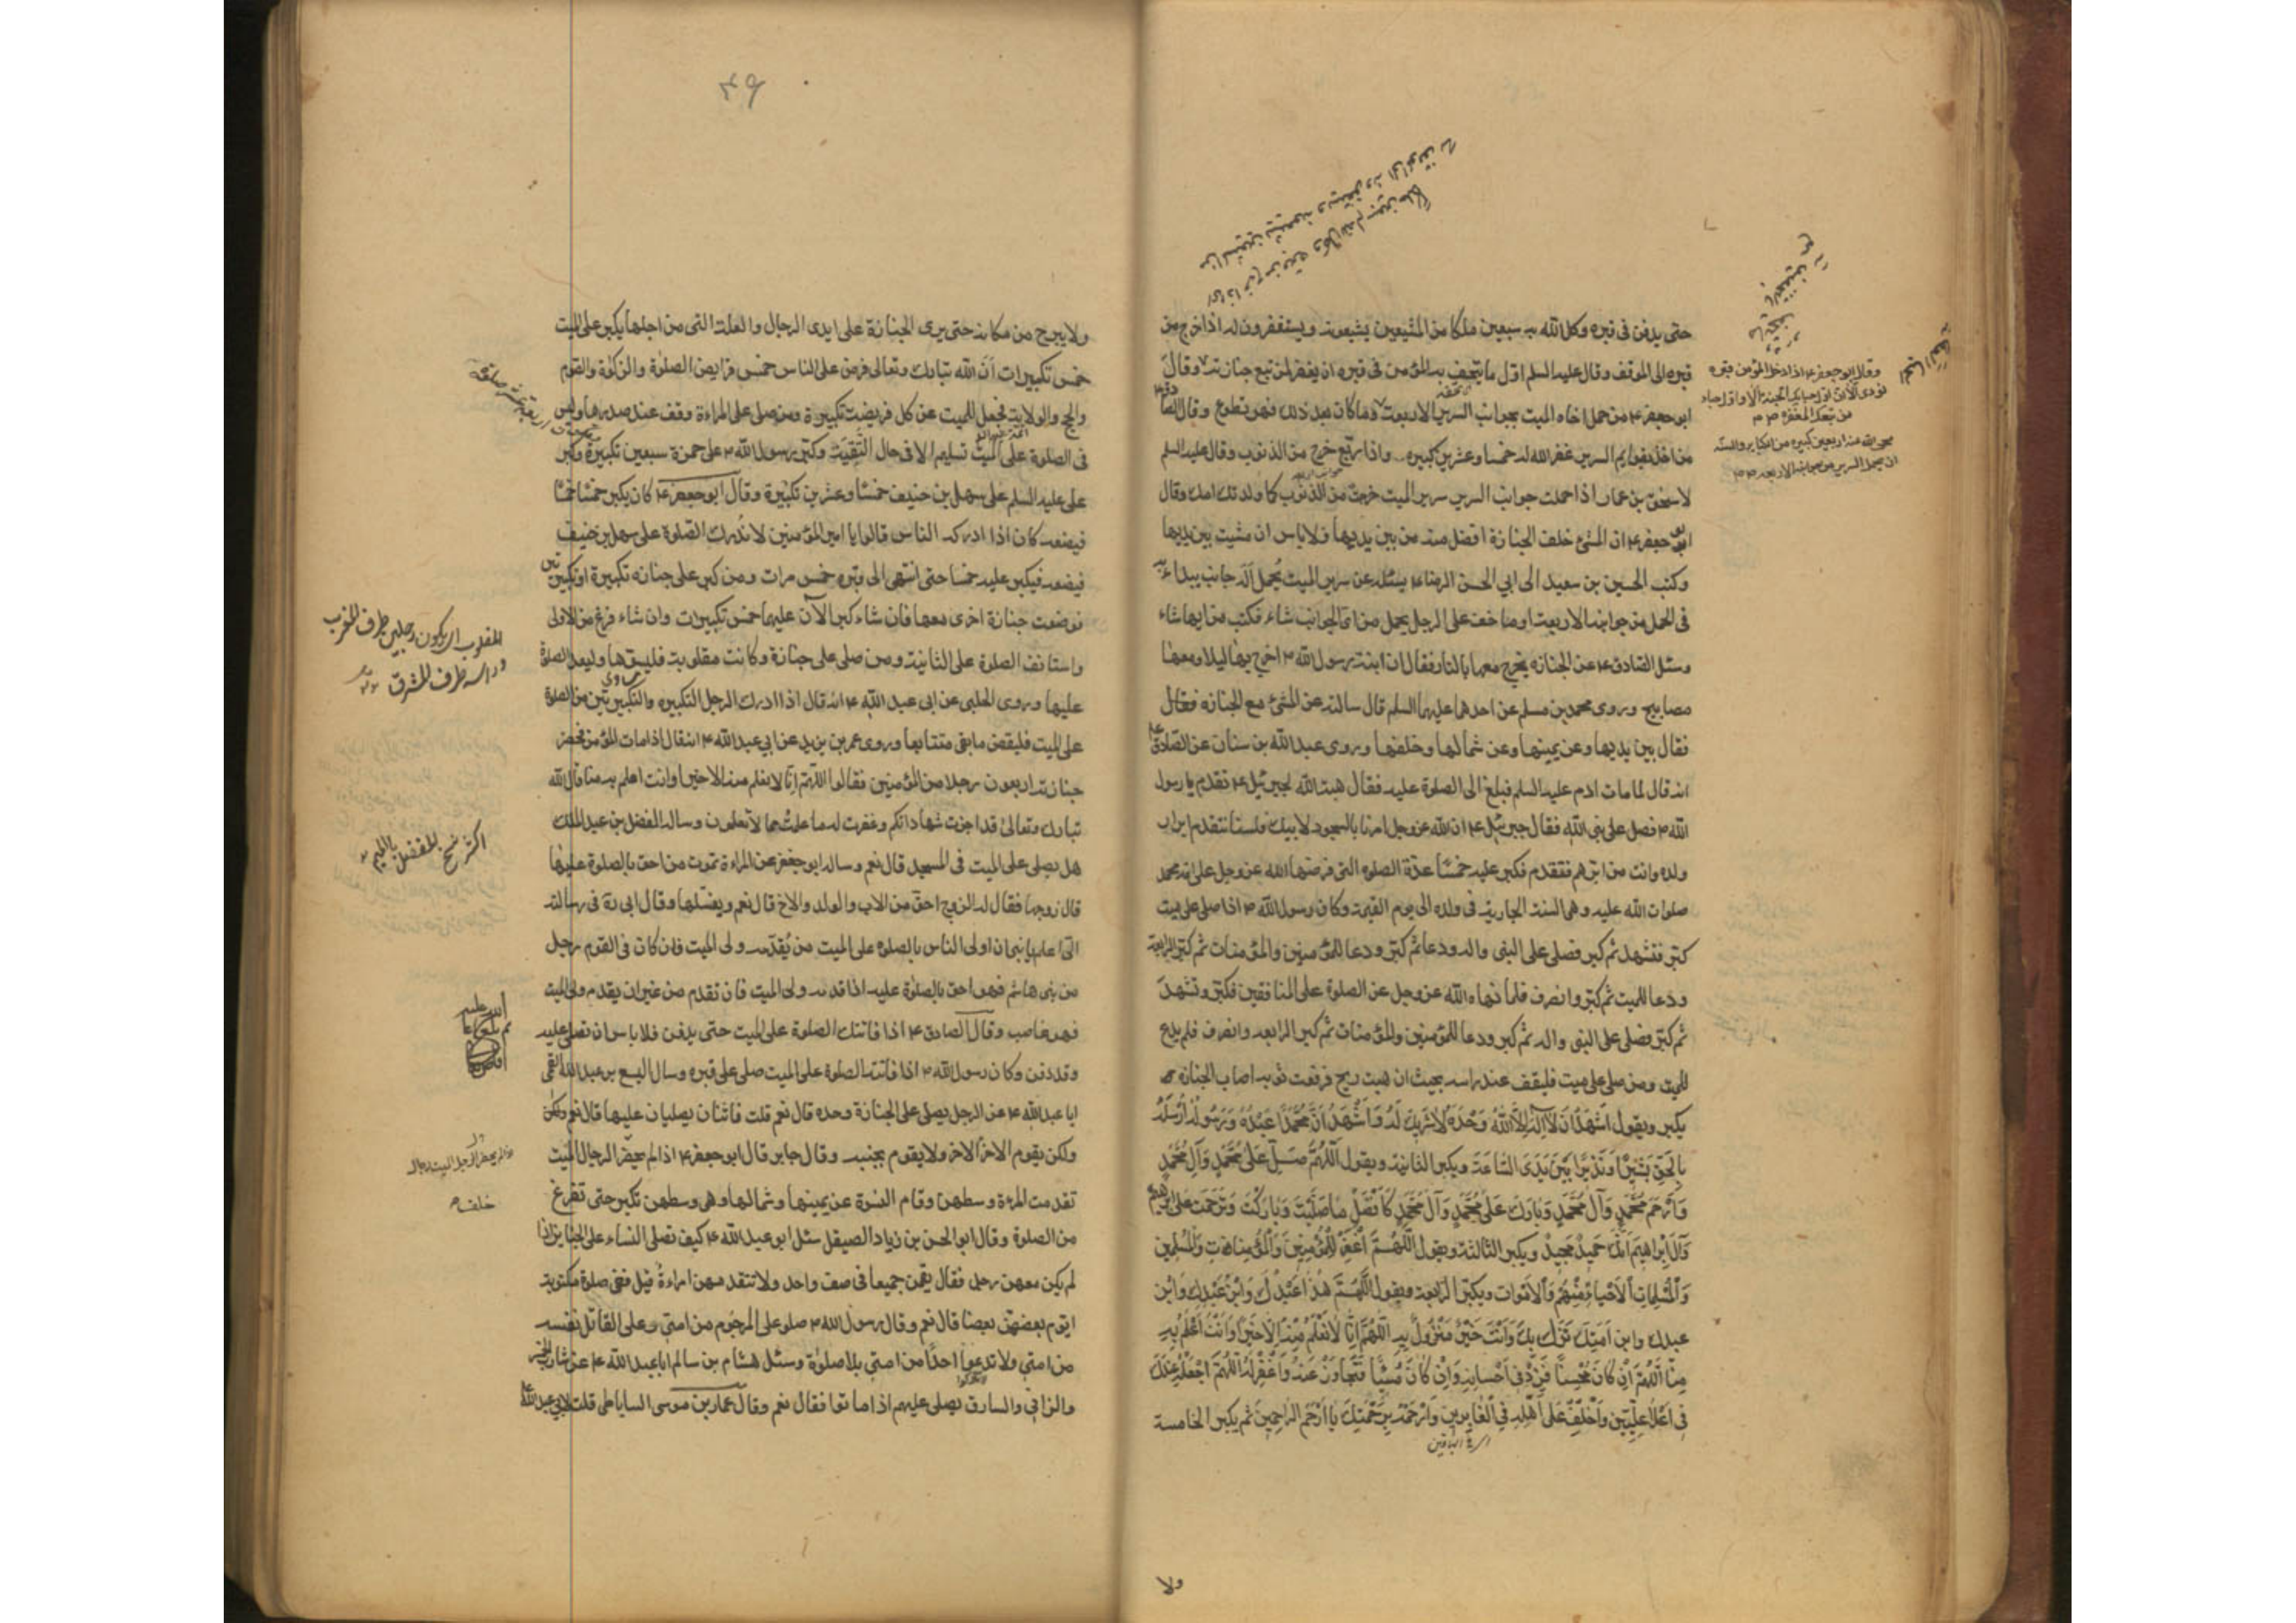 حتى يدفن فى قبره وكل الله به سبعين ملكا من المشيعين يشيعونه ويستغفرون له اذا خرج من
قبره الى الموقف وقال عليه السلم اول ما يتحف به المؤمن فى قبره ان يغفر لمن تبع جنازته وقال
ابو جعفر ع من حمل اخاه الميت بجوانب السرير الاربعة وما كان بعد ذلك فهو تطوع وقال
من اخذ بقوايم السرير غفر الله له خمسا وعشرين كبيره واذا ربع خرج من الذنوب وقال عليه السلم
لاسحق بن عمار اذا حملت جوانب السرير سرير الميت خرجت من الذنوب كما ولدتك امك وقال
ابو جعفر ع ان المشى خلف الجنازة افضل منه من بين يديها ولا باس ان مشيت بين يديها
وكتب الحسين بن سعيد الى ابي الحسن الرضا ع يسئله عن سرير الميت يُحمل اله جانب يبداء به
فى الحمل من جوانبه الاربعة او ما خف على الرجل يحمل من اى الجوانب شاء فكتب من ايها شاء
وسئل الصادق ع عن الجنازه يخرج معها بالنار فقال ان ابنة رسول الله ص اخرج بها ليلا ومعها
مصابيح وروى محمد بن مسلم عن احدهما عليهما السلم قال سالته عن المشئ مع الجنازه فقال
فقال بين يديها وعن يمينها وعن شمالها وخلفها وروى عبد الله بن سنان عن الصادق
انه قال لما مات ادم عليه السلم فبلغ الى الصلوة عليه فقال هبة الله لجبرئيل ع تقدم يا رسول
الله فصل على نبى الله فقال جبرئيل ع ان الله عز وجل امرنا بالسجود لابيك ولسنا نتقدم ابرار
ولده وانت من ابرهم فتقدم فكبر عليه خمسًا عدة الصلوه التى فرضها الله عز وجل على امة محمد
صلوات الله عليه وهى السنة الجارية فى ولده الى يوم القيمة وكان رسول الله ص اذا صلى على ميت
كبّر فتشهد ثم كبر فصلى على النبى واله ودعا ثم كبّر ودعا للمؤمنين والمؤمنات ثم كبّر الرابعة
ودعا للميت ثم كبّر وانصرف فلما نهاه الله عز وجل عن الصلوة على المنافقين فكبّر وتشهد
ثم كبّر فصلى على النبى واله ثم كبر ودعا للمؤمنين والمؤمنات ثم كبر الرابعه وانصرف فلم يدع
للميت ومن صلى على ميت فليقف عند راسه بحيث ان هبت ريح فرفعت ثوبه اصاب الجنازه
يكبر ويقول اَشْهَدُ اَنْ لاَ اِلٰهَ اِلاَّ اللهُ وَحْدَهُ لاَ شَرِيكَ لَهُ وَاَشْهَدُ اَنَّ مُحَمَّدًا عَبْدُهُ وَرَسُولُهُ اَرْسَلَهُ
بِالْحَقِّ بَشِيْرًا وَنَذِيْرًا بَيْنَ يَدَىِ السَّاعَةِ ويكبر الثانية ويقول اَللّٰهُمَّ صَلِّ عَلٰى مُحَمَّدٍ وَآلِ مُحَمَّدٍ
وَارْحَمْ مُحَمَّدٍ وَآلَ مُحَمَّدٍ وَبَارِكْ عَلٰى مُحَمَّدٍ وَآلِ مُحَمَّدٍ كَاَفْضَلِ مَا صَلَّيْتَ وَبَارَكْتَ وَتَرَحَّمْتَ عَلٰى ابرهيم
وَآلِ اِبْرَاهِيمَ اِنَّكَ حَمِيدٌ مَجِيدٌ ويكبر الثالثة ويقول اَللّٰهُمَّ اغْفِرْ لِلْمُؤْمِنِينَ وَالْمُؤْمِنَاتِ وَالْمُسْلِمِينَ
وَالْمُسْلِمَاتِ اَلْاَحْيَاءِ مِنْهُمْ وَالْاَمْوَاتِ ويكبّر الرابعة ويقول اَللّٰهُمَّ هٰذَا عَبْدُكَ وَابْنُ عَبْدِكَ وَابْن
عبدك وابن اَمَتِكَ نَزَلَ بِكَ وَاَنْتَ خَيْرُ مَنْزُولٍ بِهِ اَللّٰهُمَّ اِنَّا لَا نَعْلَمُ مِنْهُ اِلَّا خَيْرًا وَاَنْتَ اَعْلَمُ بِهِ
مِنَّا اَللّٰهُمَّ اِنْ كَانَ مُحْسِنًا فَزِدْ فِى اِحْسَانِهِ وَاِنْ كَانَ مُسِيْئًا فَتَجَاوَزْ عَنْهُ وَاغْفِرْ لَهُ اَللّٰهُمَّ اجْعَلْهُ عِنْدَكَ
فِى اَعْلَا عِلِّيِّيْنَ وَاخْلُفْ عَلٰى اَهْلِهِ فِى الْغَابِرِينَ وَارْحَمْهُ بِرَحْمَتِكَ يَا اَرْحَمَ الرَّاحِمِينَ ثم يكبر الخامسة
اى فى الباقين
ولا
وقال ابو جعفر ع اذا دخل المؤمن قبره
نودى الا ان اول حبائك الجنة الا واول حباء
من تبعك المغفره
محى الله عنه اربعين كبيره من الكباير والسنه
ان يحمل السرير من جوانبه الاربعه
ولا يبرح من مكانه حتى يرى الجنازة على ايدى الرجال والعلة التى من اجلها يكبر على الميت
خمس تكبيرات اَنّ الله تبارك وتعالى فرض على الناس خمس فرايض الصلوة والزكوة والصوم
والحج والولاية فجعل للميت عن كل فريضة تكبيرة ومن صلى على المراءة وقف عند صدرها وليس
فى الصلوة على الميت تسليم الا فى حال التَّقِيَّة وكبّر رسول الله ص على حمزة سبعين تكبيرة وكبر
على عليه السلم على سهل بن حنيف خمسًا وعشرين تكبيرة وقال ابو جعفر ع كان يكبر خمسًا خمسًا
فيضعه كان اذا ادركه الناس قالوا يا امير المؤمنين لا نُدرك الصلوة على سهل بن حنيف
فيضعه فيكبر عليه خمسا حتى انتهى الى قبره خمس مرات ومن كبر على جنازه تكبيرة او تكبيرتين
فوضعت جنازة اخرى معها فان شاء كبر الآن عليهما خمس تكبيرات وان شاء فرغ من الاولى
واستانف الصلوة على الثانية ومن صلى على جنازة وكانت مقلوبة فليسوها وليعد الصلوة
عليها وروى الحلبى عن ابى عبد الله ع انه قال اذا ادرك الرجل التكبيره والتكبيرتين من الصلوة
على الميت فليقض ما بقى متتابعا وروى عمر بن يزيد عن ابي عبد الله ع انه قال اذا مات المؤمن فحضر
جنازته اربعون رجلا من المؤمنين فقالوا اللّٰهم اِنّا لا نعلم منه الا خيرا وانت اعلم به منا قال الله
تبارك وتعالى قد اجزت شهاداتكم وغفرت له ما علمتُ مما لا تعلمون وساله الفضل بن عبد الملك
هل يصلى على الميت فى المسجد قال نعم وساله ابو جعفر عن المراءة تموت من احق بالصلوة عليها
قال زوجها فقال له الزوج احق من الاب والولد والاخ قال نعم ويغسّلها وقال ابى ره فى رسالته
الىّ اعلم يا بنى ان اولى الناس بالصلوه على الميت من يُقدّمه ولى الميت فان كان فى القوم رجل
من بنى هاشم فهو احق بالصلوة عليه اذا قدمه ولى الميت فان تقدم من غير ان يقدمه ولى الميت
فهو غاصب وقال الصادق ع اذا فاتتك الصلوة على الميت حتى يدفن فلا باس ان تصلى عليه
وقد دفن وكان رسول الله ص اذا فاتته الصلوة على الميت صلى على قبره وسال اليسع بن عبد الله القمى
ابا عبد الله ع عن الرجل يصلى على الجنازة وحده قال نعم قلت فاثنان يصليان عليها قال نعم ولكن
ولكن يقوم الاخر خلف الاخر ولا يقوم بجنبه وقال جابر قال ابو جعفر ع اذا لم يحضر الرجال الميت
تقدمت المرءة وسطهن وقام النسوة عن يمينها وشمالها وهى وسطهن تكبر حتى تفرغ
من الصلوة وقال ابو الحسن بن زياد الصيقل سئل ابو عبد الله ع كيف تصلى النساء على الجنايز اذا
لم يكن معهن رجل فقال يقمن جميعا فى صف واحد ولا تتقدمهن امراءة قيل ففى صلوة مكتوبة
ايؤم بعضهن بعضا قال نعم وقال رسول الله ص صلو على المرجوم من امتى وعلى القاتل نفسه
من امتى ولا تدعوا احدًا من امتى بلا صلوة وسئل هشام بن سالم ابا عبد الله ع عن شارب الخمر
والزاني والسارق يصلى عليهم اذا ماتوا فقال نعم وقال عمار بن موسى الساباطى قلت لابى عبد الله
المقلوب ان يكون رجليه طرف المغرب
وراسه طرف المشرق
اكثر نسخ المفضل بالميم
خلف